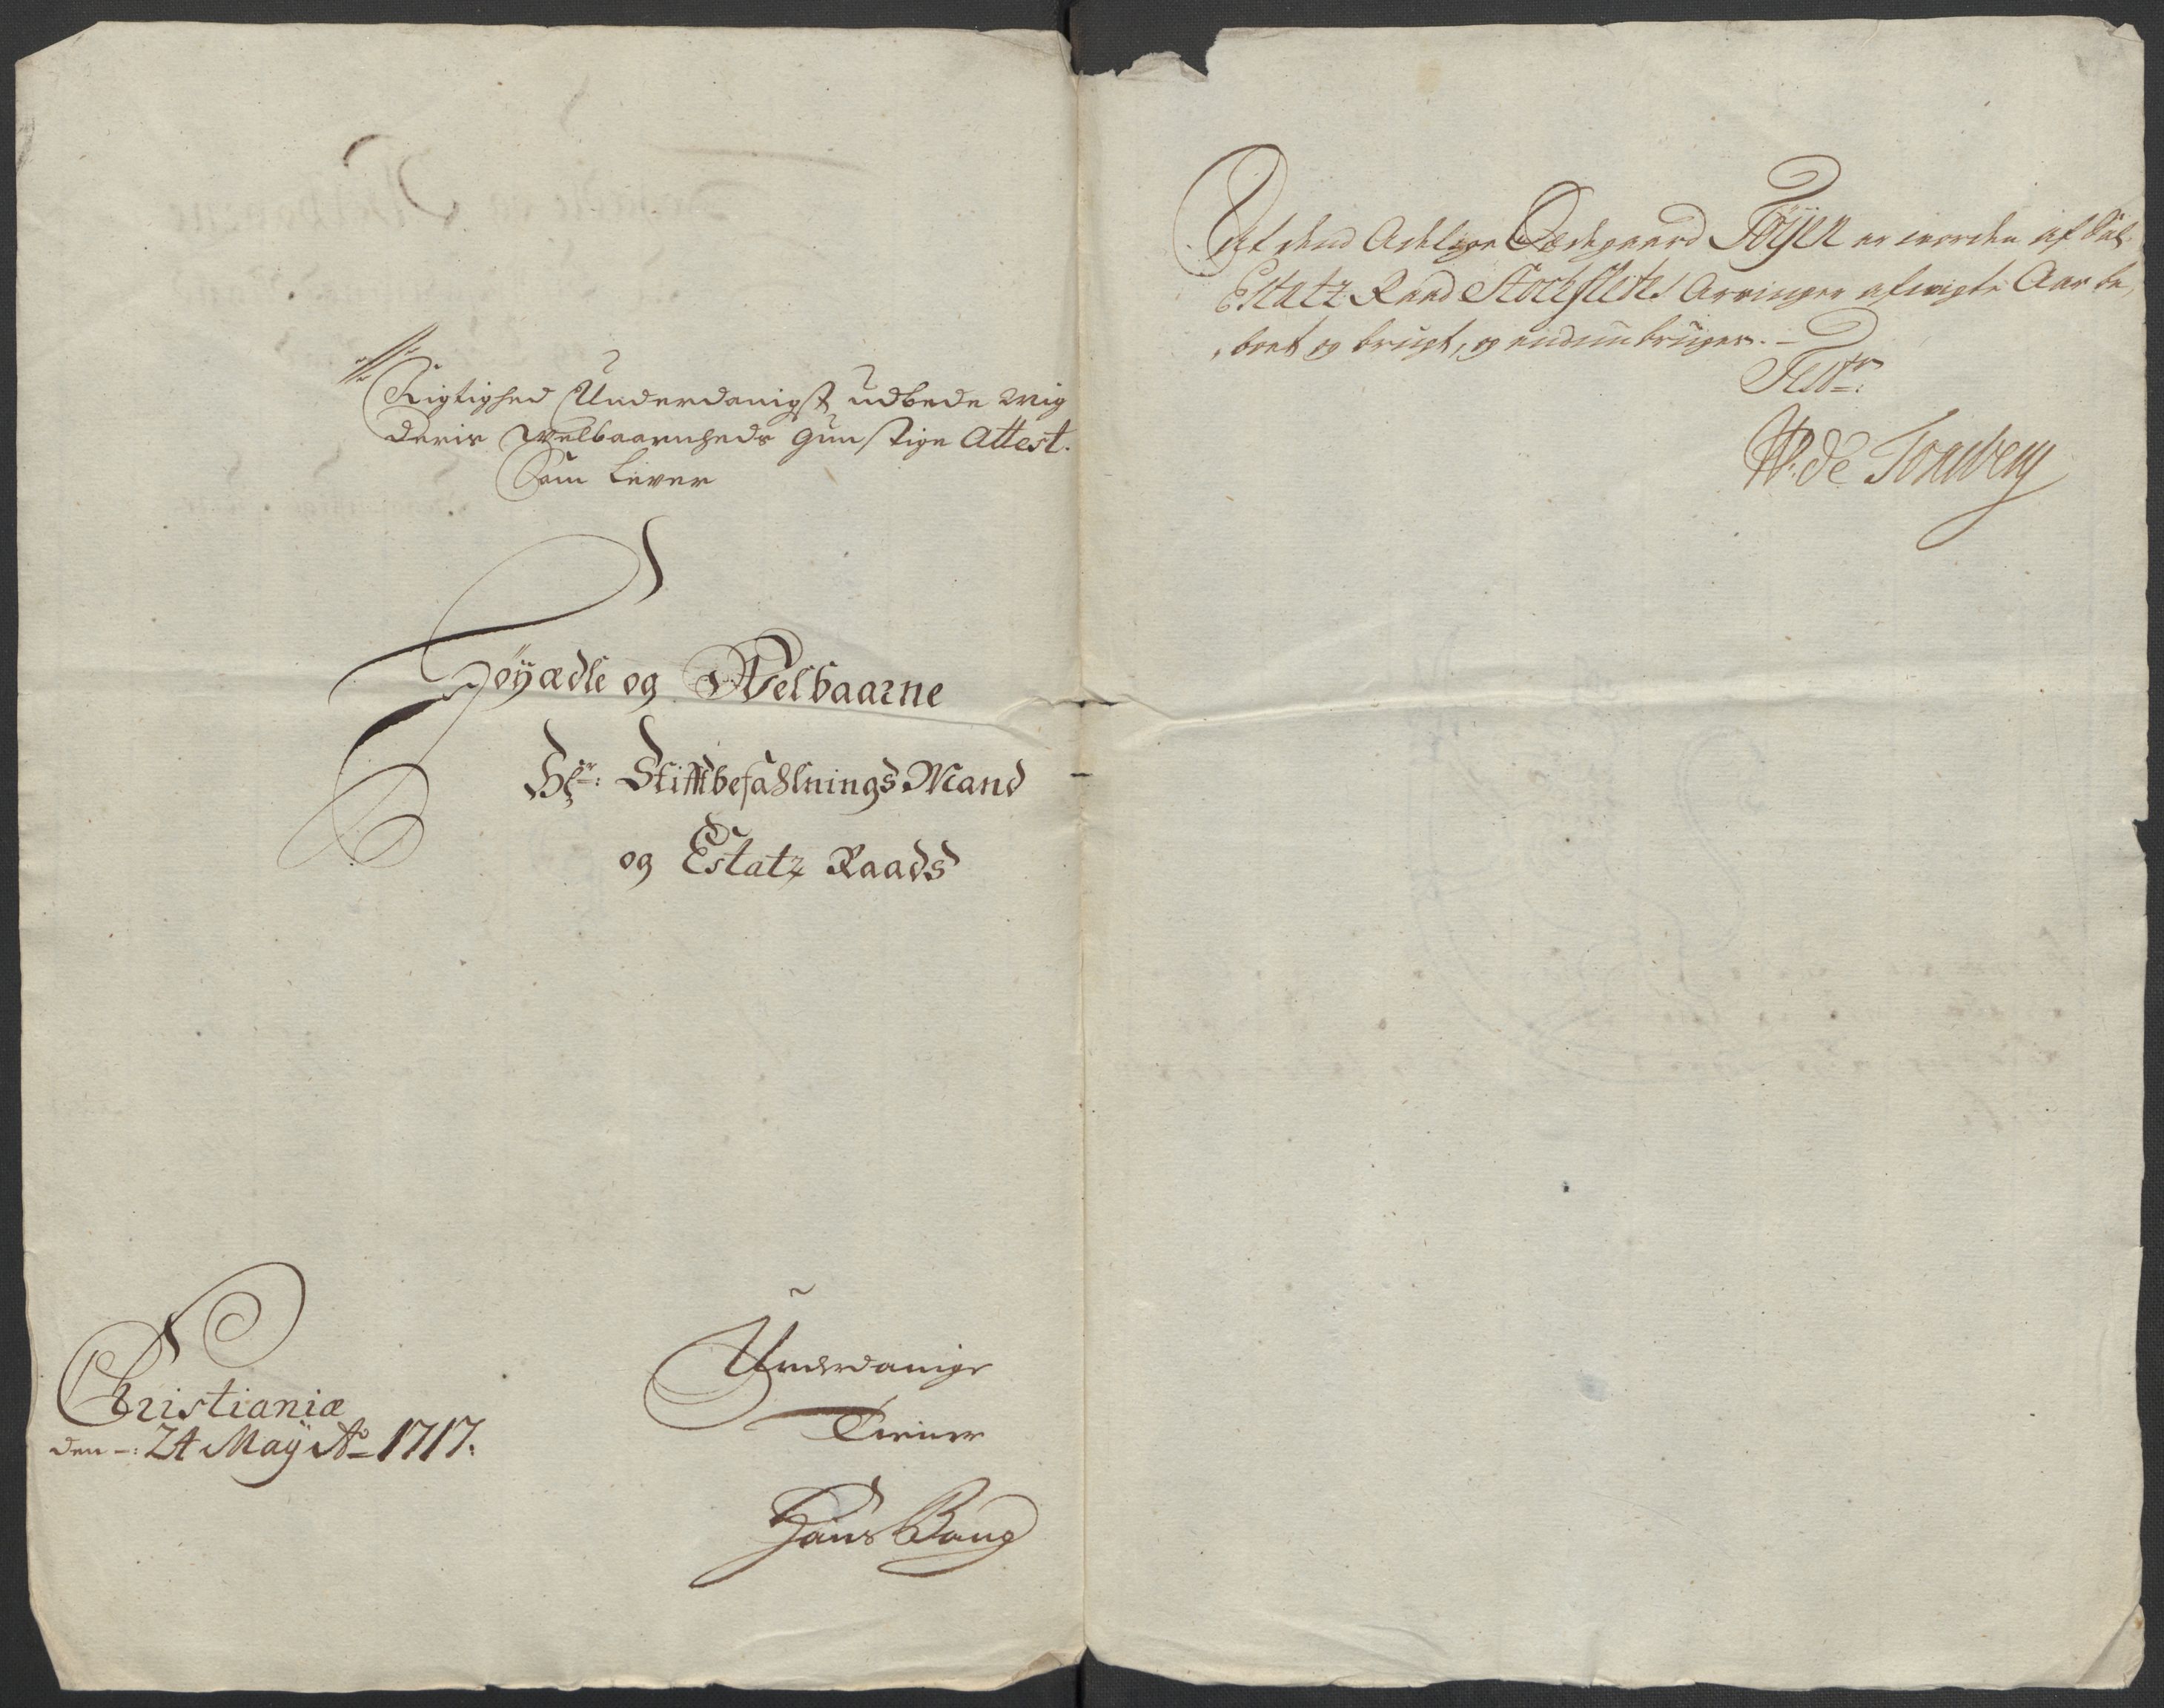 Rigtighed Underdanigst udbede mig
Deris Welbaarnheds gunstige Attest.
Som lever
Høyædle og Welbaarne
Hr: Stiftbefahlnings Mand
og Estatz Raads
Christianiæ
den -: 24 Maÿ Ao 1717.
Underdanige
Tiener
Hans Bang
At dend Adelige Sædegaard Tøÿen er worden af Sal:
Estatz Raad Stochfletes Arvinger afvigte Aar be,
,boet og brugt, og endnu bruges. -
Testr:
W: de Tonsberg